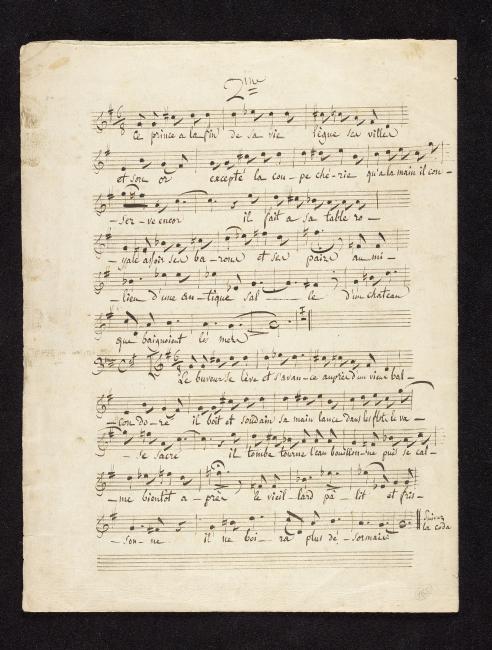 2me
Ce prince a la fin de sa vie lègue ses villes
et son or excepté la cou-pe ché-rie qu'a la main il con-
-ser-ve encor il fait a sa table ro-
-yale assoir ses ba-rons et ses pairs au mi-
-lieu d'une an-tique sal-le d'un chateau
que baignoient les mers
Le buveur se lève et s'avan-ce auprès d'un vieux bal-
-con do-ré il boit et soudain sa main lance dans les flots le va-
-se sacré il tombe tourne l'eau bouillon-ne puis se cal-
-me bientôt a-près le vieil-lard pâ-lit et fris-
-son-ne il ne boi-ra plus dé-sormais
Suivez
la coda